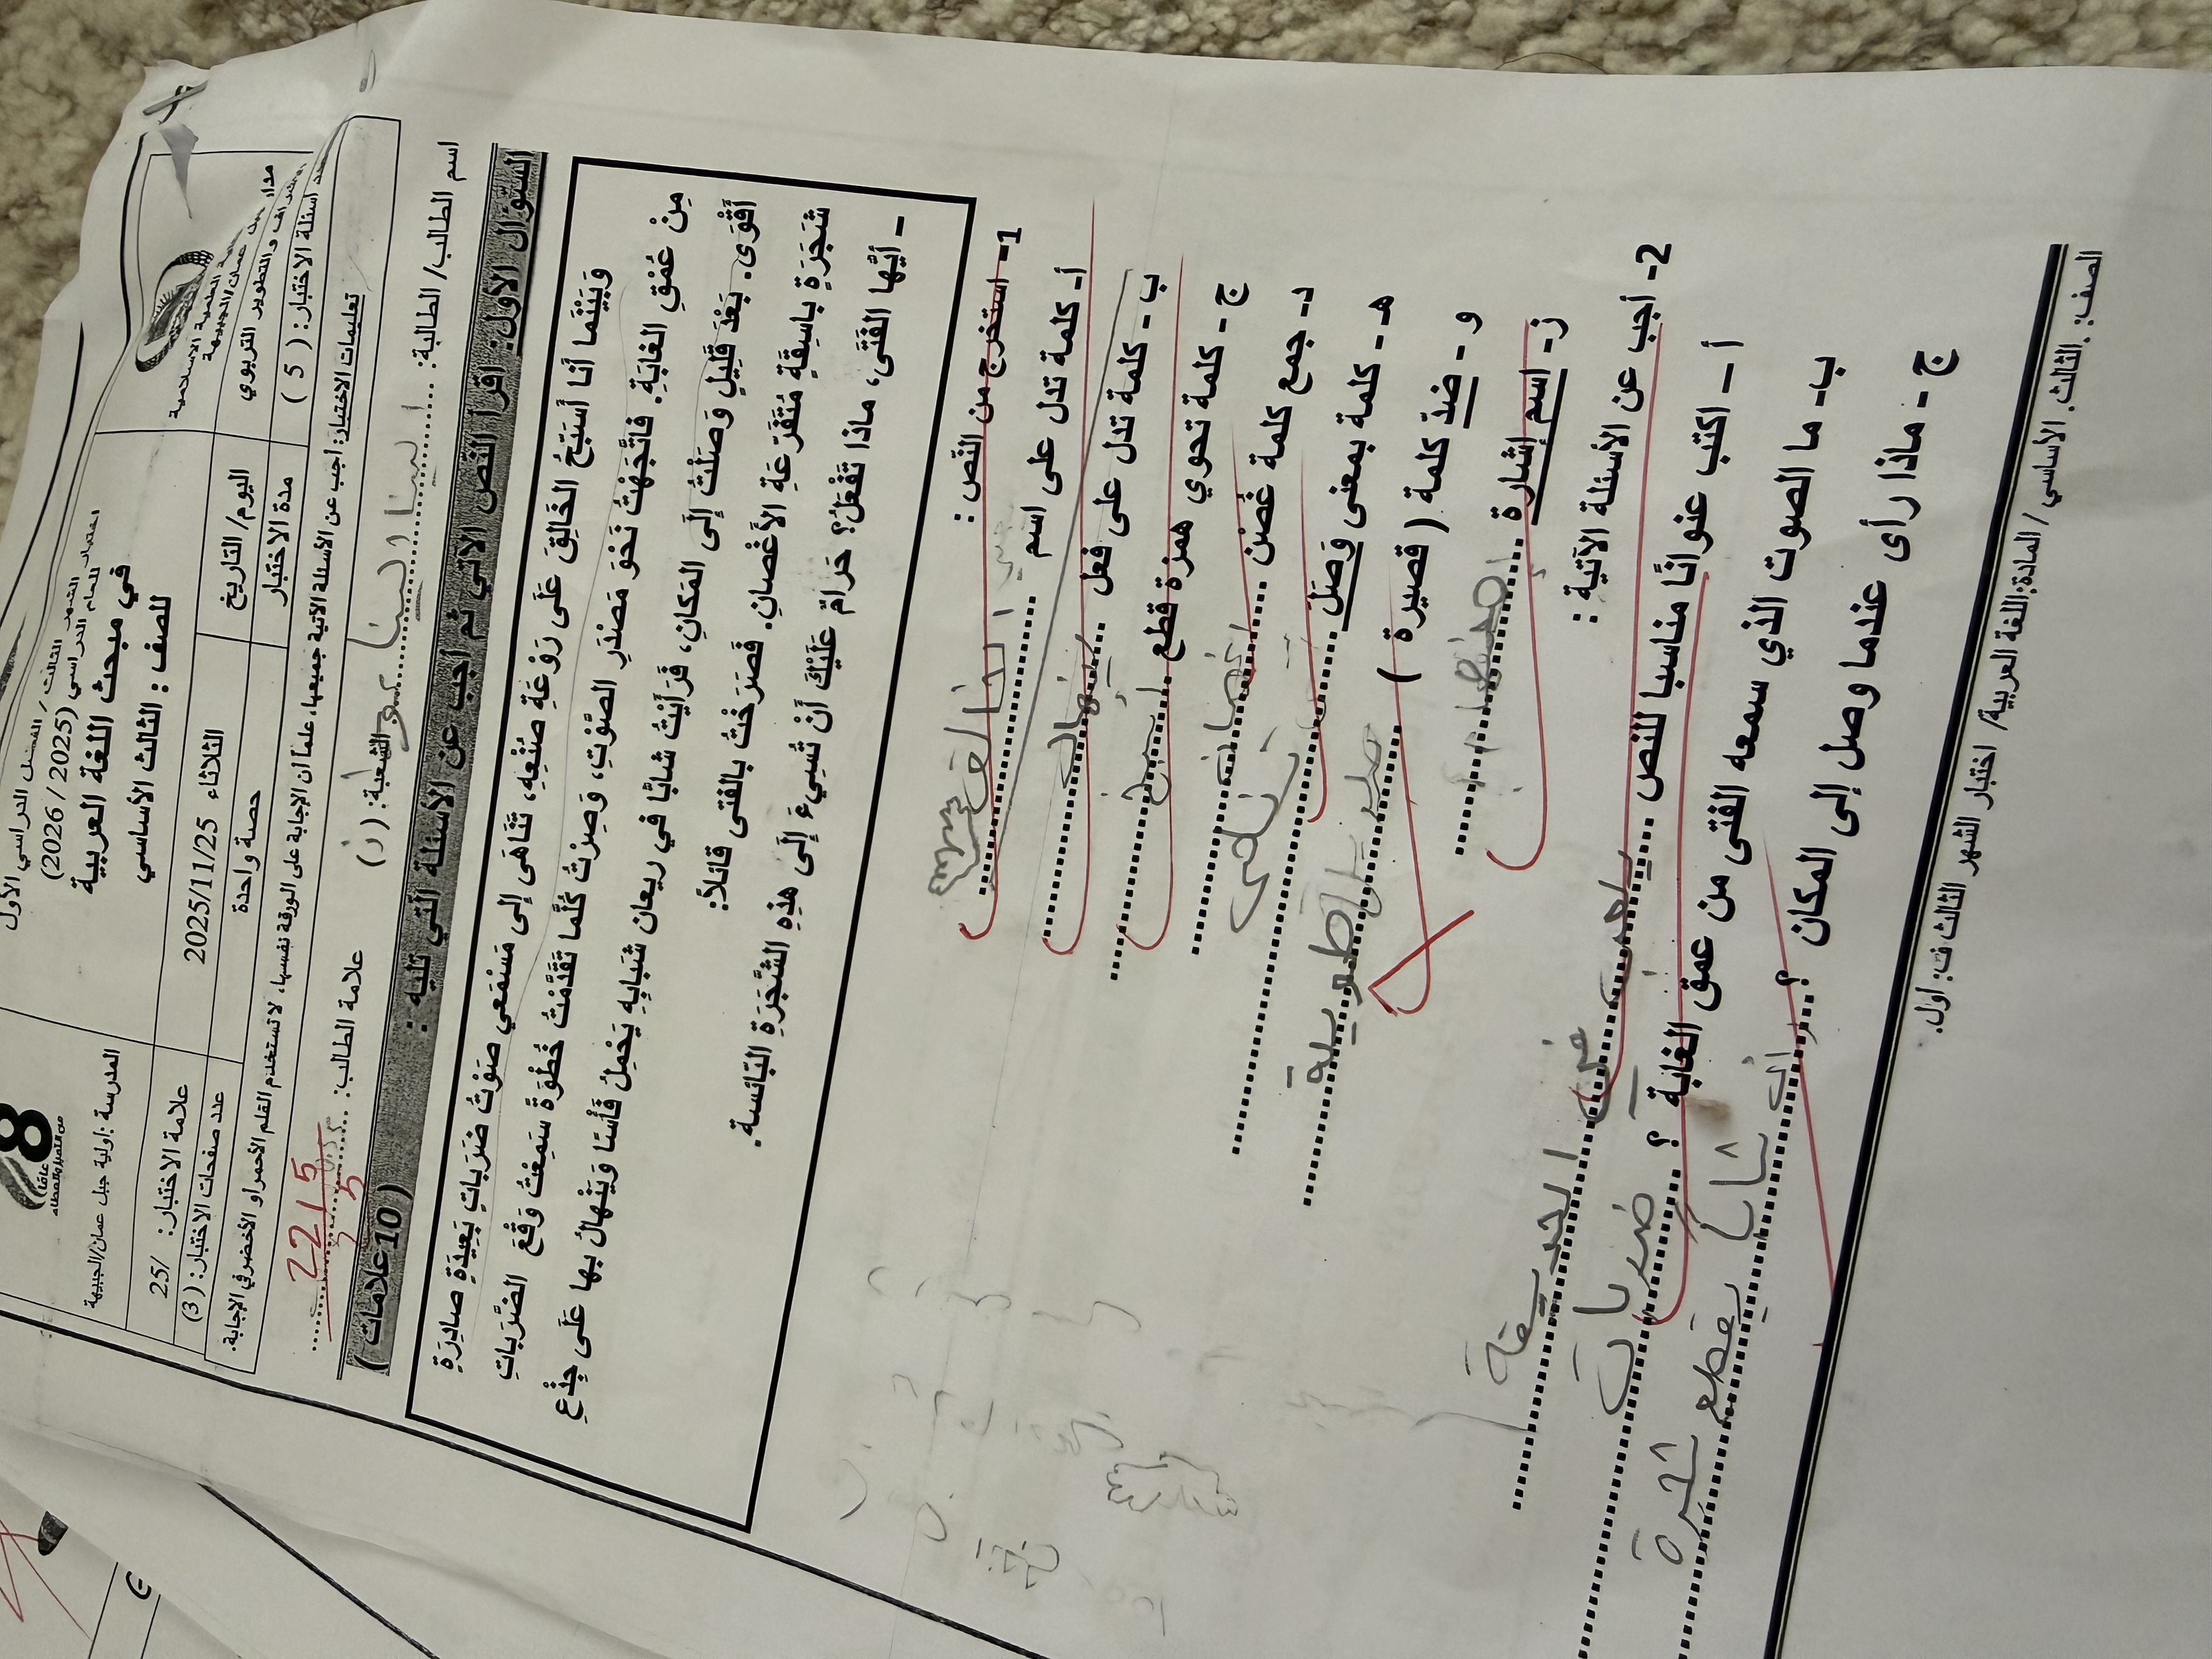 المدرسة: أولية جبل عمان/الجبيهة
علامة الاختبار: /25
عدد صفحات الاختبار: (3)
للعام الدراسي (2025 / 2026)
في مبحث اللغة العربية
للصف : الثالث الأساسي
اليوم/ التاريخ
الثلاثاء 2025/11/25
مدة الاختبار
حصة واحدة
أسئلة الاختبار: ( 5 )
تعليمات الاختبار: أجب عن الأسئلة الآتية جميعها، علماً أن الإجابة على الورقة نفسها، لا تستخدم القلم الأحمر أو الأخضر في الإجابة.
اسم الطالب/ الطالبة:
الشعبة: (د)
علامة الطالب:
السؤال الأول: اقرأ النص الآتي ثم أجب عن الأسئلة التي تليه : (10علامات)
وَبَيْنَما أَنا أُسَبِّحُ الخَالِقَ عَلَى رَوْعَةِ صُنْعِهِ، تَنَاهَى إِلى مَسْمَعي صَوْتُ ضَرَباتٍ بَعِيدَةٍ صادِرَةٍ
مِنْ عُمْقِ الغابَةِ. فَاتَّجَهْتُ نَحْوَ مَصْدَرِ الصَّوْتِ، وَصِرْتُ كُلَّما تَقَدَّمْتُ خُطْوَةً سَمِعْتُ وَقْعَ الضَّرَباتِ
أَقْوَى. بَعْدَ قَلِيلٍ وَصَلْتُ إِلَى المَكانِ، فَرَأَيْتُ شابًّا في ريعان شَبابِهِ يَحْمِلُ فَأْسًا وَيَنْهالُ بها عَلَى جِذْعِ
شَجَرَةٍ باسِقَةٍ مُتَفَرِّعَةِ الأَغْصانِ. فَصَرَخْتُ بالفَتى قائلاً:
- أَيُّها الفَتَى، ماذا تَفْعَلُ؟ حَرامٌ عَلَيْكَ أَنْ تُسِيءَ إِلَى هذِهِ الشَّجَرَةِ البَائسة.
1- استخرج من النص :
أ- كلمة تدل على اسم الخالق
ب- كلمة تدل على فعل ينهال
ج- كلمة تحوي همزة قطع أسبح
د- جمع كلمة غُصْن أغصان
هـ- كلمة بمعنى وَصَلَ تناهى
و- ضدّ كلمة ( قصيرة ) طويلة
ز- اسم إشارة هذه
2- أجب عن الأسئلة الآتية :
أ – اكتب عنوانًا مناسبا للنص الحديقة
ب- ما الصوت الذي سمعه الفتى من عمق الغابة ؟ ضربات
ج – ماذا رأى عندما وصل إلى المكان ؟ رأى شاب يقطع شجرة
الصف: الثالث الأساسي / المادة:اللغة العربية/ اختبار الشهر الثالث ف: أول.